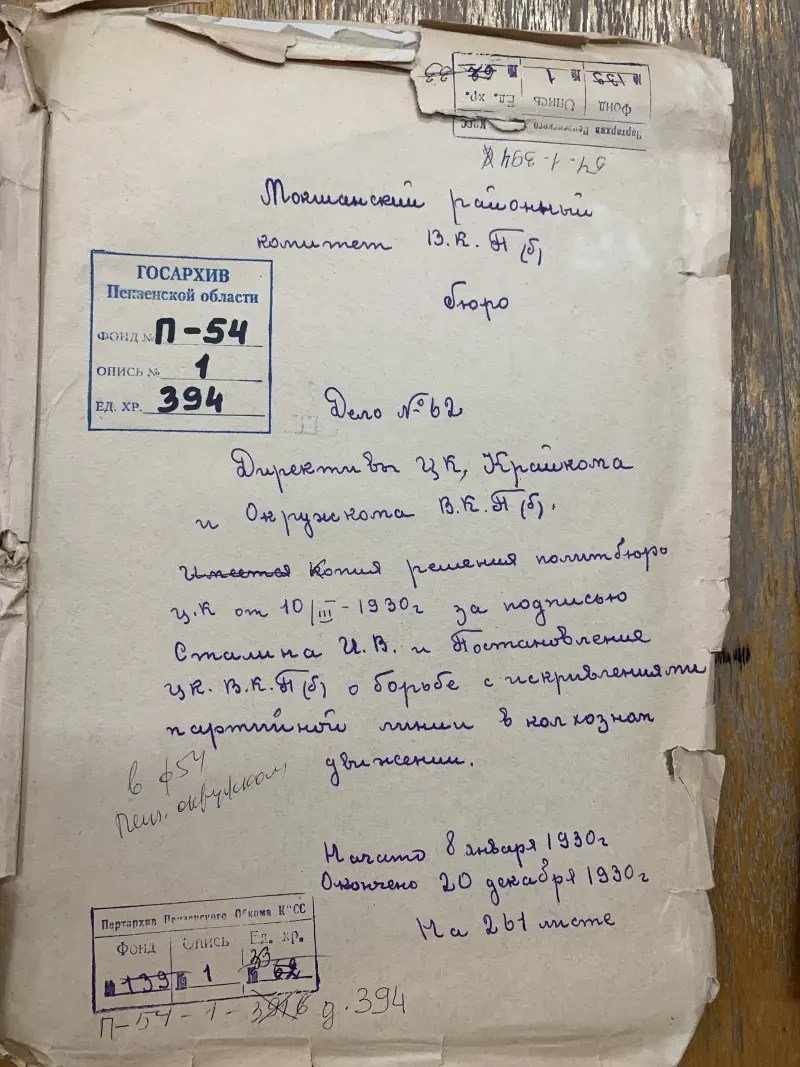 № 139 № 1 № 62 33
Фонд Опись Ед. хр.
Партархив Пензенского КПСС
54-1-394
Мокшанский районный
комитет В.К.П(б)
бюро
ГОСАРХИВ
Пензенской области
ФОНД № П-54
ОПИСЬ № 1
ЕД. ХР. 394
Дело № 62
Директивы ЦК, Крайкома
и Окружкома В.К.П(б).
Имеется Копия решения политбюро
ц.к от 10/III-1930г за подписью
Сталина И.В. и Постановления
ЦК. В.К.П(б) о борьбе с искривлениями
партийной линии в колхозном
движении.
в ф54
Пенз. окружком
Начато 8 января 1930г
Окончено 20 декабря 1930г
На 261 листе
Партархив Пензенского Обкома КПСС
Фонд Опись Ед. хр.
33
№ 139 № 1 № 62
П-54-1- д. 394